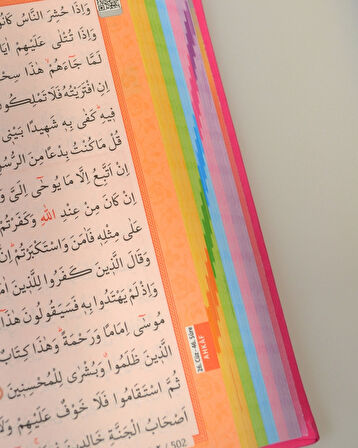 وَاِذَا حُشِرَ النَّاسُ كَانُو
وَاِذَا تُتْلٰى عَلَيْهِمْ اٰيَا
لَمَّا جَٓاءَهُمْۙ هٰذَا سِحْ
اِنِ افْتَرَيْتُهُ فَلَا تَمْلِكُو
فٖيهِؕ كَفٰى بِهٖ شَهٖيدًا بَيْنٖى
قُلْ مَا كُنْتُ بِدْعًا مِنَ الرُّسُ
اِنْ اَتَّبِعُ اِلَّا مَا يُوحٰٓى اِلَىَّ وَ
اِنْ كَانَ مِنْ عِنْدِ اللّٰهِ وَكَفَرْتُمْ
عَلٰى مِثْلِهٖ فَاٰمَنَ وَاسْتَكْبَرْتُمْؕ اِنَّ
وَقَالَ الَّذٖينَ كَفَرُوا لِلَّذٖينَ اٰمَ
وَاِذْ لَمْ يَهْتَدُوا بِهٖ فَسَيَقُولُونَ هٰذَٓا
مُوسٰٓى اِمَامًا وَرَحْمَةًؕ وَهٰذَا كِتَابٌ
الَّذٖينَ ظَلَمُواۗ وَبُشْرٰى لِلْمُحْسِنٖينَ
ثُمَّ اسْتَقَامُوا فَلَا خَوْفٌ عَلَيْهِمْ وَلَا
اَصْحَابُ الْجَنَّةِ خَالِدٖينَ
502
26. Cüz-46. Sûre
AHKAF